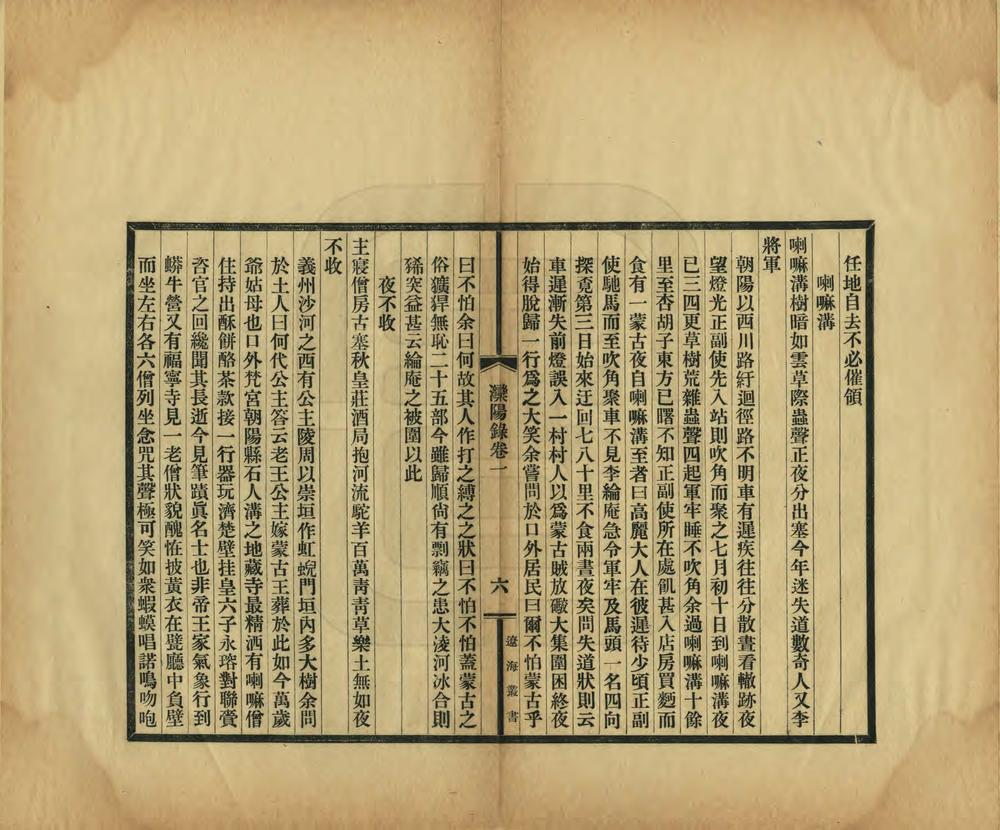 任地自去不必催領
喇嘛溝
喇嘛溝樹暗如雲草際蟲聲正夜分出塞今年迷失道數奇人又李
將軍
朝陽以西川路紆迴徑路不明車有遲疾往往分散晝看轍跡夜
望燈光正副使先入站則吹角而聚之七月初十日到喇嘛溝夜
已三四更草樹荒雜蟲聲四起軍牢睡不吹角余過喇嘛溝十餘
里至杏胡子東方已曙不知正副使所在處飢甚入店房買麪而
食有一蒙古夜自喇嘛溝至者曰高麗大人在彼遲待少頃正副
使馳馬而至吹角聚車不見李綸庵急令軍牢及馬頭一名四向
探覓第三日始來迂回七八十里不食兩晝夜矣問失道狀則云
車遲漸失前燈誤入一村村人以爲蒙古賊放礮大集圍困終夜
始得脫歸一行爲之大笑余嘗問於口外居民曰爾不怕蒙古乎
灤陽錄卷一
六
遼海叢書
曰不怕余曰何故其人作打之縛之之狀曰不怕不怕蓋蒙古之
俗獷猂無恥二十五部今雖歸順尙有剽竊之患大淩河冰合則
豨突益甚云綸庵之被圍以此
夜不收
主寢僧房古塞秋皇莊酒局抱河流駝羊百萬靑靑草樂土無如夜
不收
義州沙河之西有公主陵周以崇垣作虹蜺門垣內多大樹余問
於土人曰何代公主答云老王公主嫁蒙古王葬於此如今萬歲
爺姑母也口外梵宮朝陽縣石人溝之地藏寺最精洒有喇嘛僧
住持出酥餠酪茶款接一行器玩濟楚壁挂皇六子永瑢對聯賷
咨官之回纔聞其長逝今見筆蹟眞名士也非帝王家氣象行到
蟒牛營又有福寧寺見一老僧狀貌醜恠披黃衣在甓廳中負壁
而坐左右各六僧列坐念咒其聲極可笑如衆蝦蟆唱諾鳴吻咆